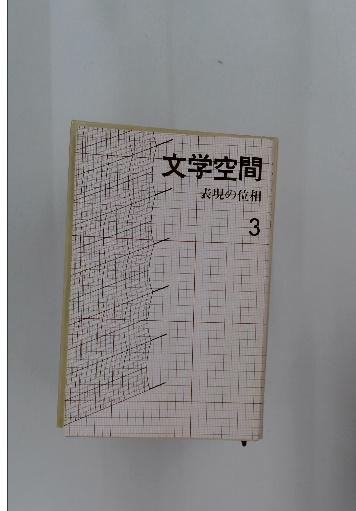 文学空間
表現の位相
3